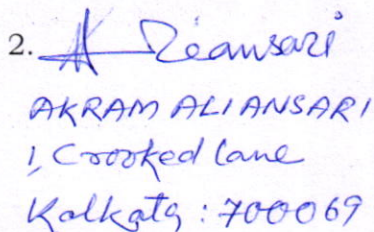 2. A Aliansari
AKRAM ALI ANSARI
1, Crooked lane
Kolkata : 700069